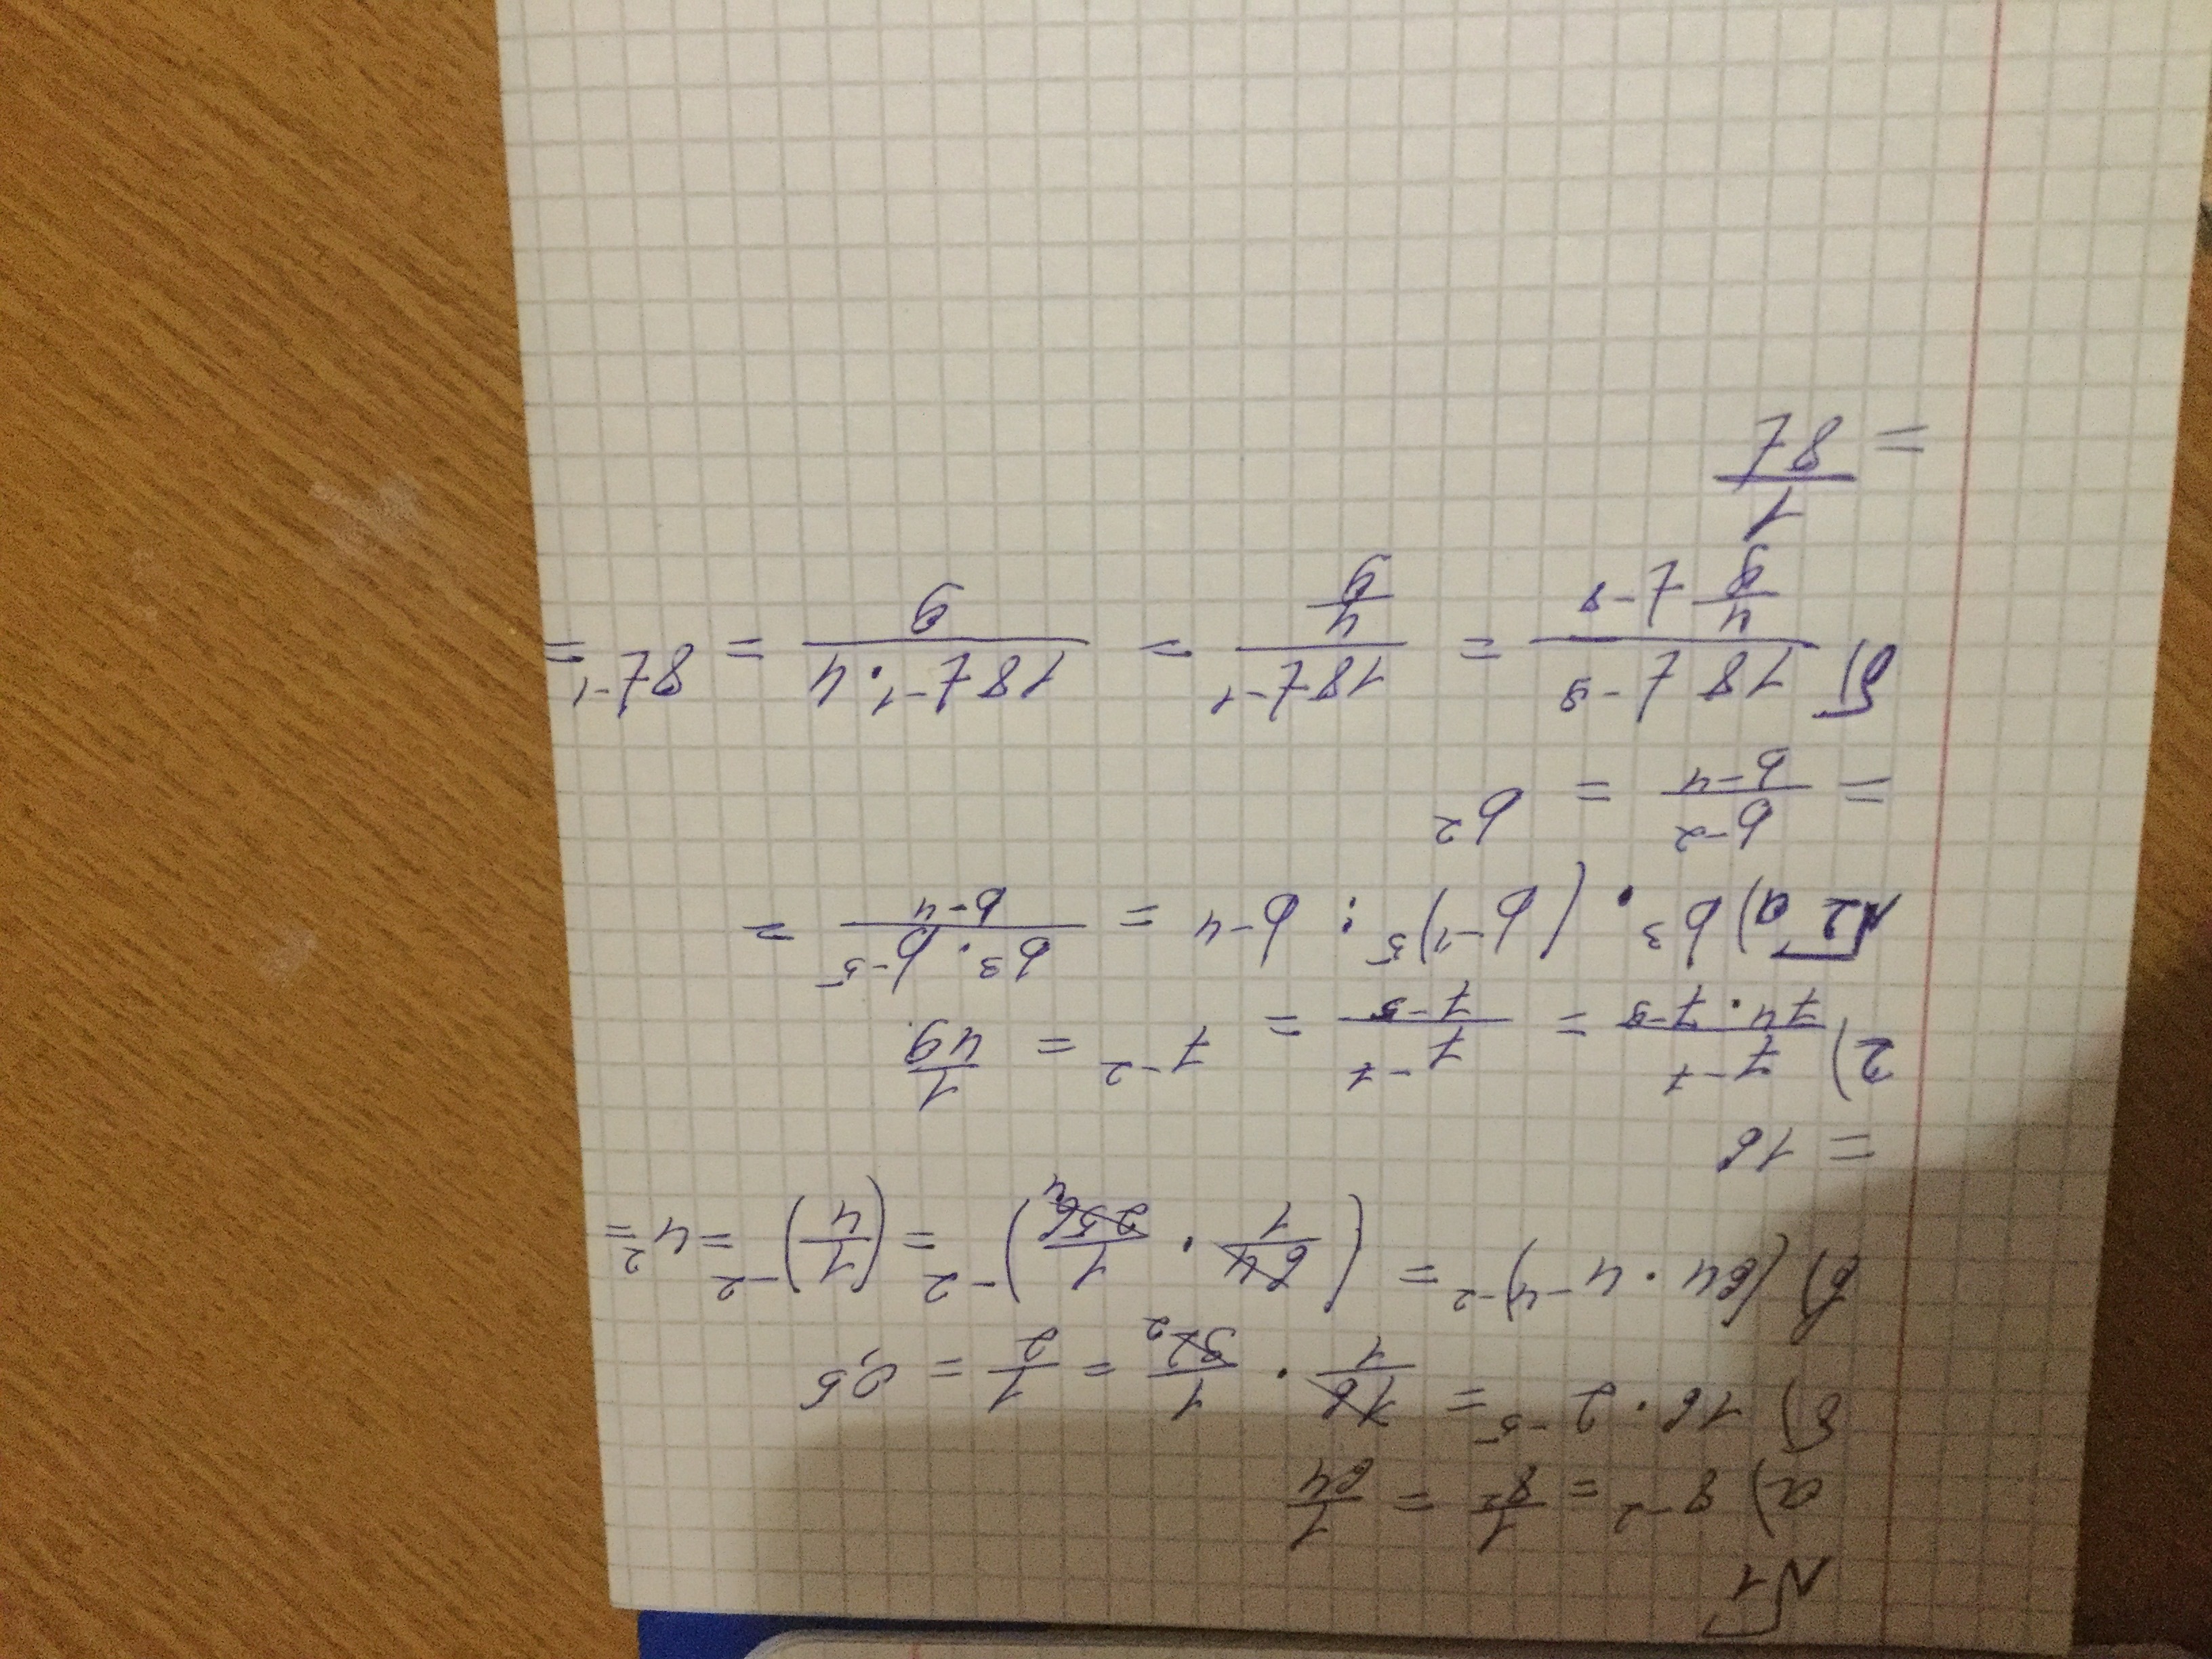 №1
а) 8⁻² = 1/8² = 1/64
б) 16 · 2⁻⁵ = 16/1 · 1/32 2 = 1/2 = 0,5
в) (64 · 4⁻⁴)⁻² = (64/1 · 1/256 4)⁻² = (1/4)⁻² = 4² =
= 16
2) 7⁻⁷/7⁴ · 7⁻⁹ = 7⁻⁷/7⁻⁵ = 7⁻² = 1/49
№2 а) b³ · (b⁻¹)⁵ : b⁻⁴ = b³ · b⁻⁵/b⁻⁴ =
= b⁻²/b⁻⁴ = b²
б) 18 7⁻⁹/4/9 7⁻⁸ = 187⁻¹/4/9 = 187⁻¹ · 4/9 = 87⁻¹ =
= 1/87